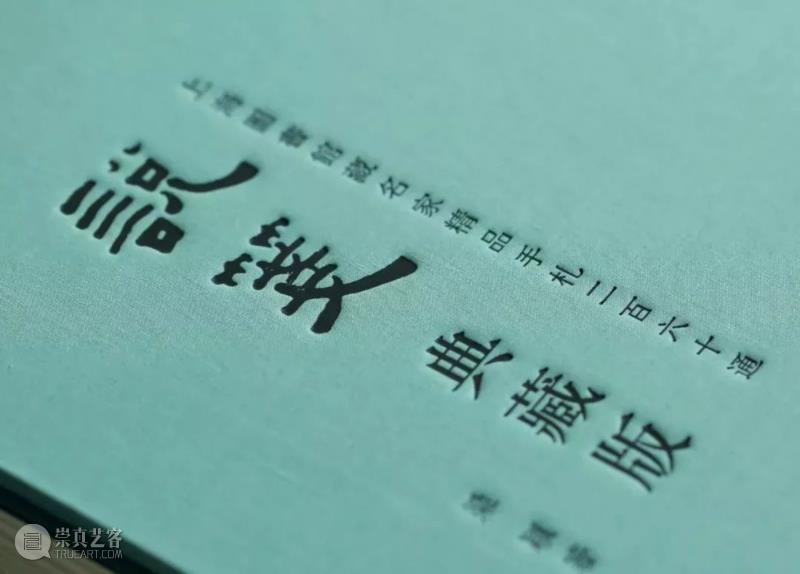 上海圖書館藏名家精品手札二百六十通
說箋
典藏版
崇真艺客
TRUEART.COM